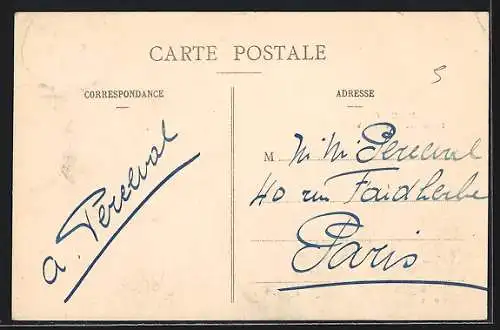 CARTE POSTALE
5
CORRESPONDANCE
ADRESSE
a. Perceval
M M. M. Perceval
40 rue Faidherbe
Paris